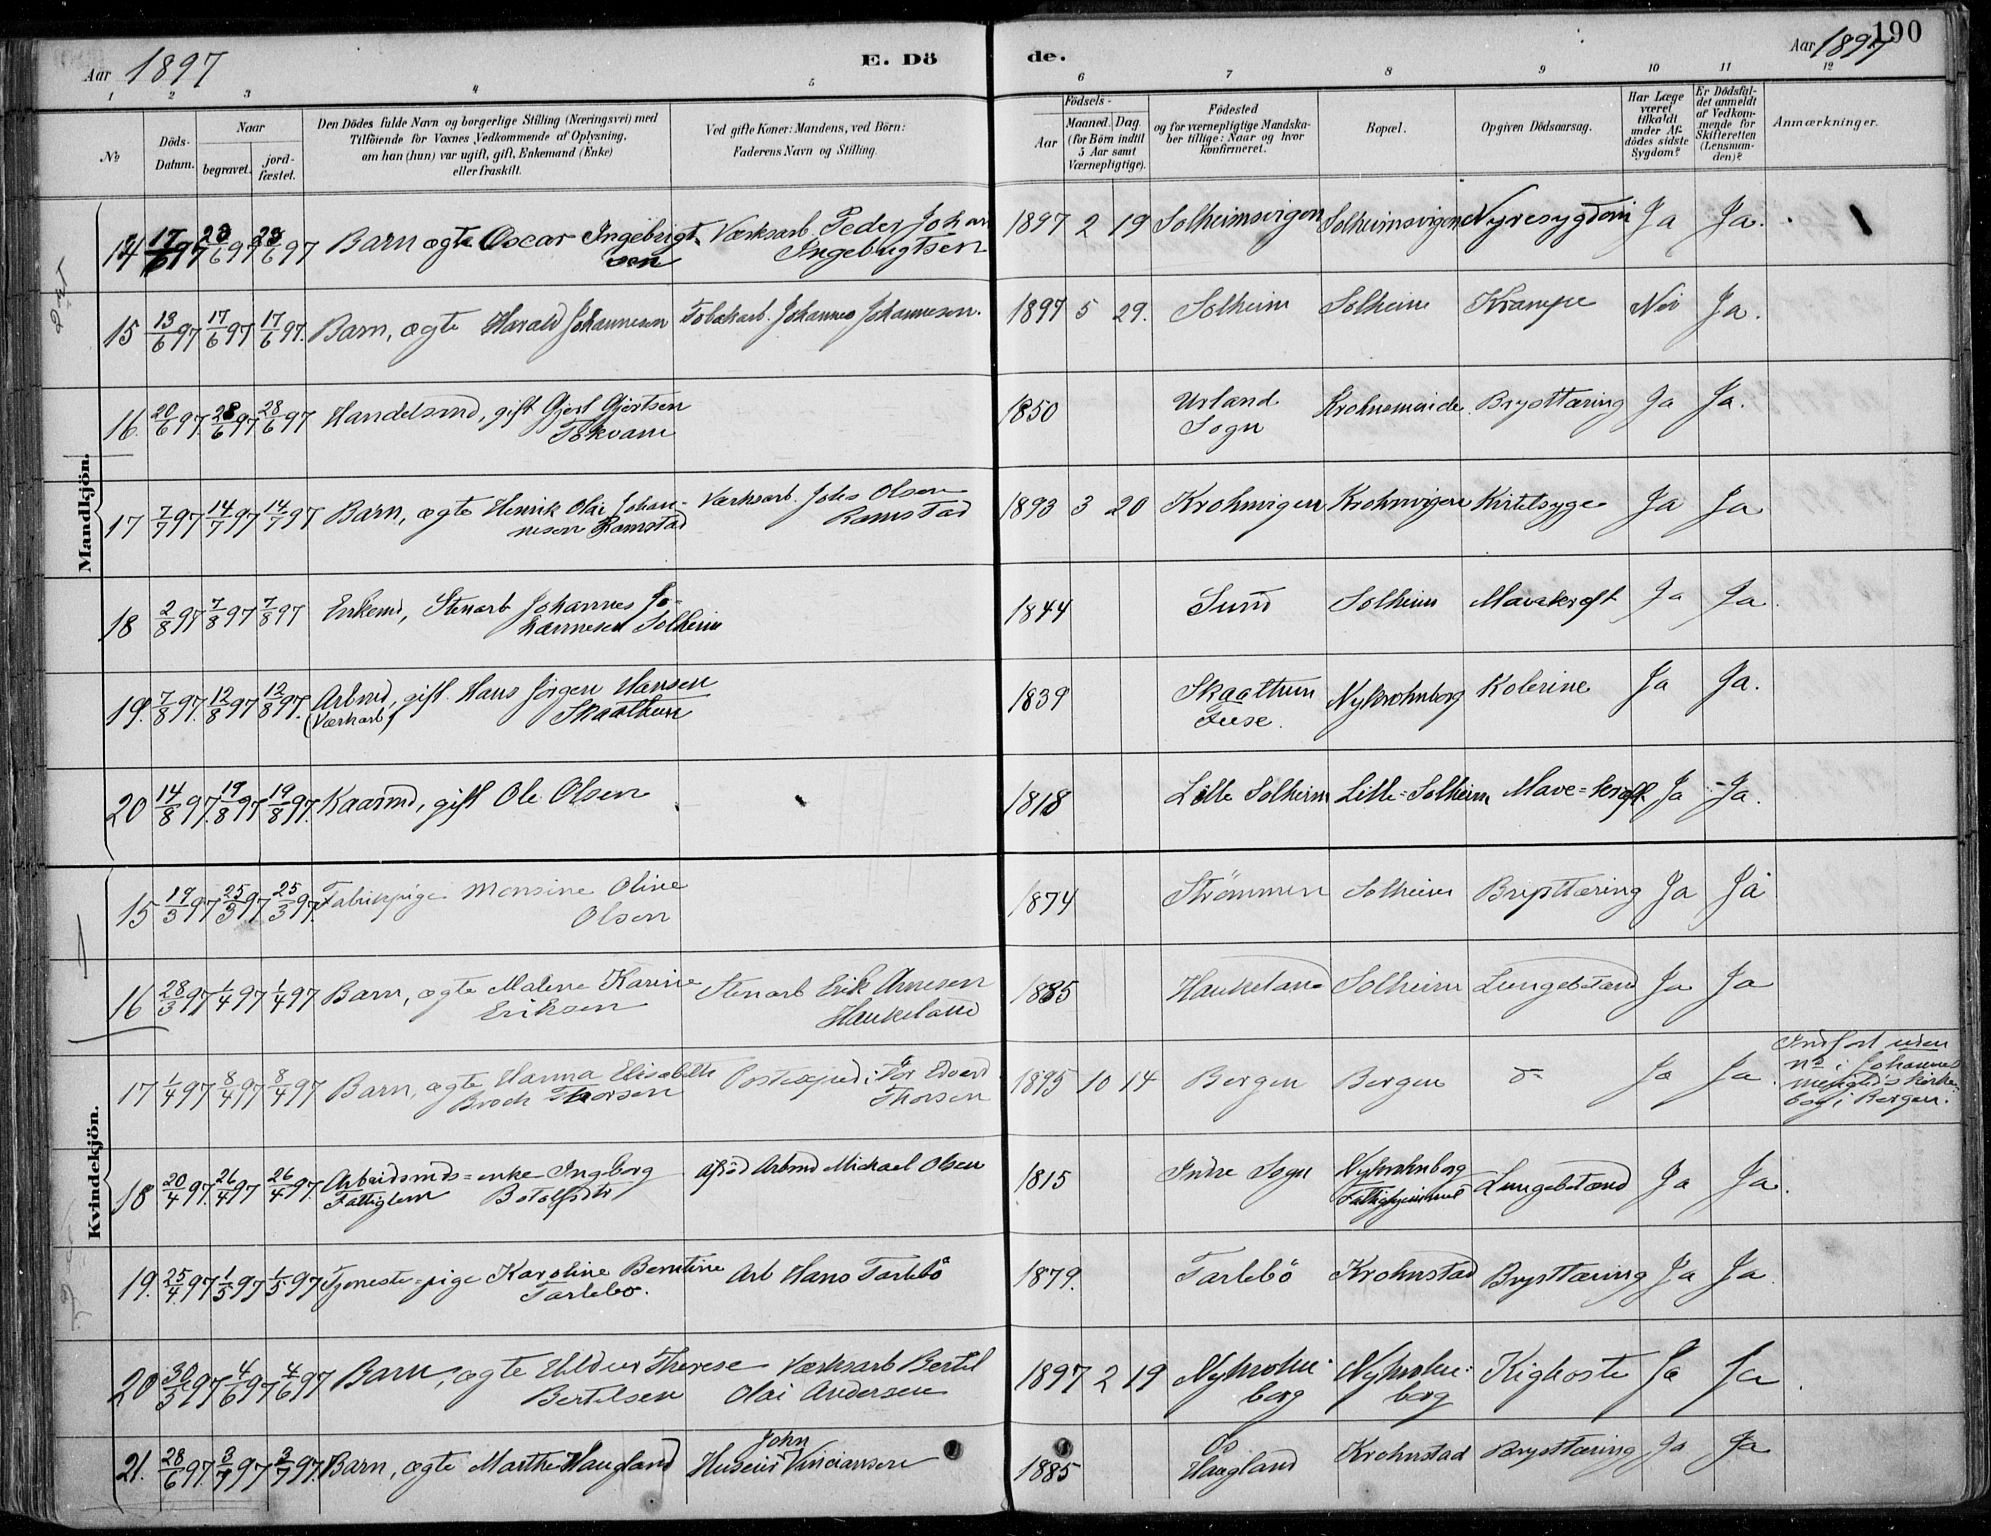 Aar 1897
E. Dö
de.
Aar 1897
190
1 2 3 4 5 6 7 8 9 10 11 12
No
Döds-
Datum.
Naar
begravet.
jord-
fæstet.
Den Dödes fulde Navn og borgerlige Stilling (Næringsvei) med
Tilföiende for Voxnes Vedkommende af Oplysning,
om han (hun) var ugift, gift, Enkemand (Enke)
eller fraskilt.
Ved gifte Koner: Mandens, ved Börn:
Faderens Navn og Stilling.
Födsels-
Aar
Maaned.
Dag.
(for Börn indtil
5 Aar samt
Værnepligtige).
Födested
og for værnepligtige Mandska-
ber tillige: Naar og hvor
konfirmeret.
Bopæl.
Opgiven Dödsaarsag.
Har Læge
været
tilkaldt
under Af-
dödes sidste
Sygdom?
Er Dödsfal-
det anmeldt
af Vedkom-
mende for
Skifteretten
(Lensman-
den)?
Anmærkninger.
Mandkjön.
14 17/6 97 23/6 97 23/6 97 Barn ægte Oscar Ingebrigt- Værksarb. Peder Johan 1897 2 19 Solheimsvigen Solheimsvigen Nyresygdom Ja Ja.
sen Ingebrigtsen
15 13/6 97 17/6 97 17/6 97. Barn, ægte Harald Johannesen Tobakarb. Johannes Johannesen. 1897 5 29. Solheim Solheim Krampe Nei Ja.
16. 20/6 97. 28/6 97 28/6 97 Handelsmd, gift Gjert Gjertsen 1850 Urland Krohnsminde Brysttæring Ja Ja.
Tokvam Sogn
17 7/7 97 14/7 97 14/7 97 Barn, ægte Henrik Olai Johan- Værksarb. Johs Olsen 1893 3 20 Krohnvigen Krohnvigen Kirtelsyge Ja Ja
nesen Ramstad Ramstad
18 2/8 97 7/8 97 7/8 97 Enkemd, Stenarb Johannes Jo- 1844 Sund Solheim Mavekræft Ja Ja.
hannesen Solheim
19. 7/8 97. 12/8 97 12/8 97. Arbmd, gift. Hans Jörgen Hansen 1839 Skaathun Nykrohnborg Kolerine Ja Ja.
(Værkarb) Skaathun Fuse.
20 14/8 97. 19/8 97 19/8 97. Kaarmd, gift Ole Olsen 1818 Lille Solheim Lille-Solheim Mave-kræft. Ja Ja.
Kvindekjön.
15 19/3 97 25/3 97 25/3 97. Fabrikpige Monsine Oline 1874 Strömmen Solheim Brysttæring Ja Ja
Olsen
16 28/3 97 1/4 97 1/4 97 Barn, ægte Malene Karine Stenarb Erik Arnesen 1885 Haukeland Solheim Lungebetænd Ja Ja
Eriksen Haukeland
17 1/4 97 8/4 97 8/4 97 Barn, ægte Hanna Elisabeth Postexped: Tor Edvard 1895 10 14 Bergen Bergen do Ja Ja.
Broch Thorsen Thorsen
Indført uden
no i Johannes
menigheds kirke-
bog i Bergen.
18 20/4 97. 26/4 97 26/4 97. Arbeidsmds-enke Ingborg afdöd Arbmd Michael Olsen 1815 Indre Sogn Nykrohnborg Lungebetænd Ja Ja.
Fattiglem Botolfsdtr Fattighjemmet
19. 25/4 97 1/5 97 1/5 97 Tjeneste-pige Karoline Berntine Arb Hans Tarlebö 1879. Tarlebö Krohnstad Brysttæring Ja Ja.
Tarlebø.
20 30/5 97 4/6 97 4/6 97 Barn, ægte Hildur Therese Værksarb Bertel 1897 2 19 Nykrohn- Nykrohn- Kighoste Ja Ja.
Bertelsen Olai Andersen borg borg
21. 28/6 97. 3/7 97 3/7 97. Barn, ægte Marthe Haugland Huseier John Vinciansen 1885 Os Krohnstad Brysttæring Ja Ja
Haugland